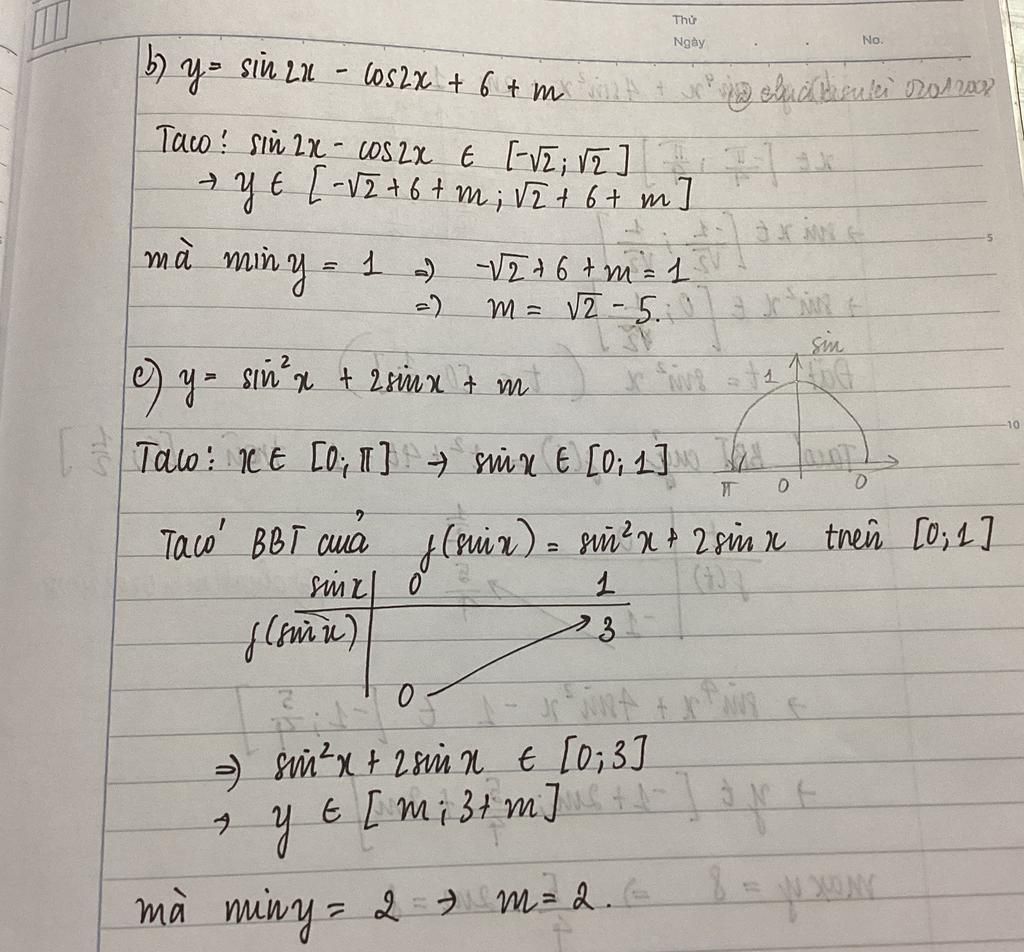 Thứ
Ngày . . No.
b) y = sin 2x - cos2x + 6 + m
Taco: sin 2x - cos 2x ∈ [-√2; √2]
→ y ∈ [-√2 + 6 + m; √2 + 6 + m]
5
mà min y = 1 ⇒ -√2 + 6 + m = 1
⇒ m = √2 - 5.
sin
1
c) y = sin²x + 2sinx + m
10
Taco: x ∈ [0; π] → sinx ∈ [0; 1]
π 0 0
Tacó BBT cuả f(sinx) = sin²x + 2sinx trên [0; 1]
sinx 0 1
f(sinx) 3
0
⇒ sin²x + 2sinx ∈ [0; 3]
→ y ∈ [m; 3+m]
mà miny = 2 → m = 2.